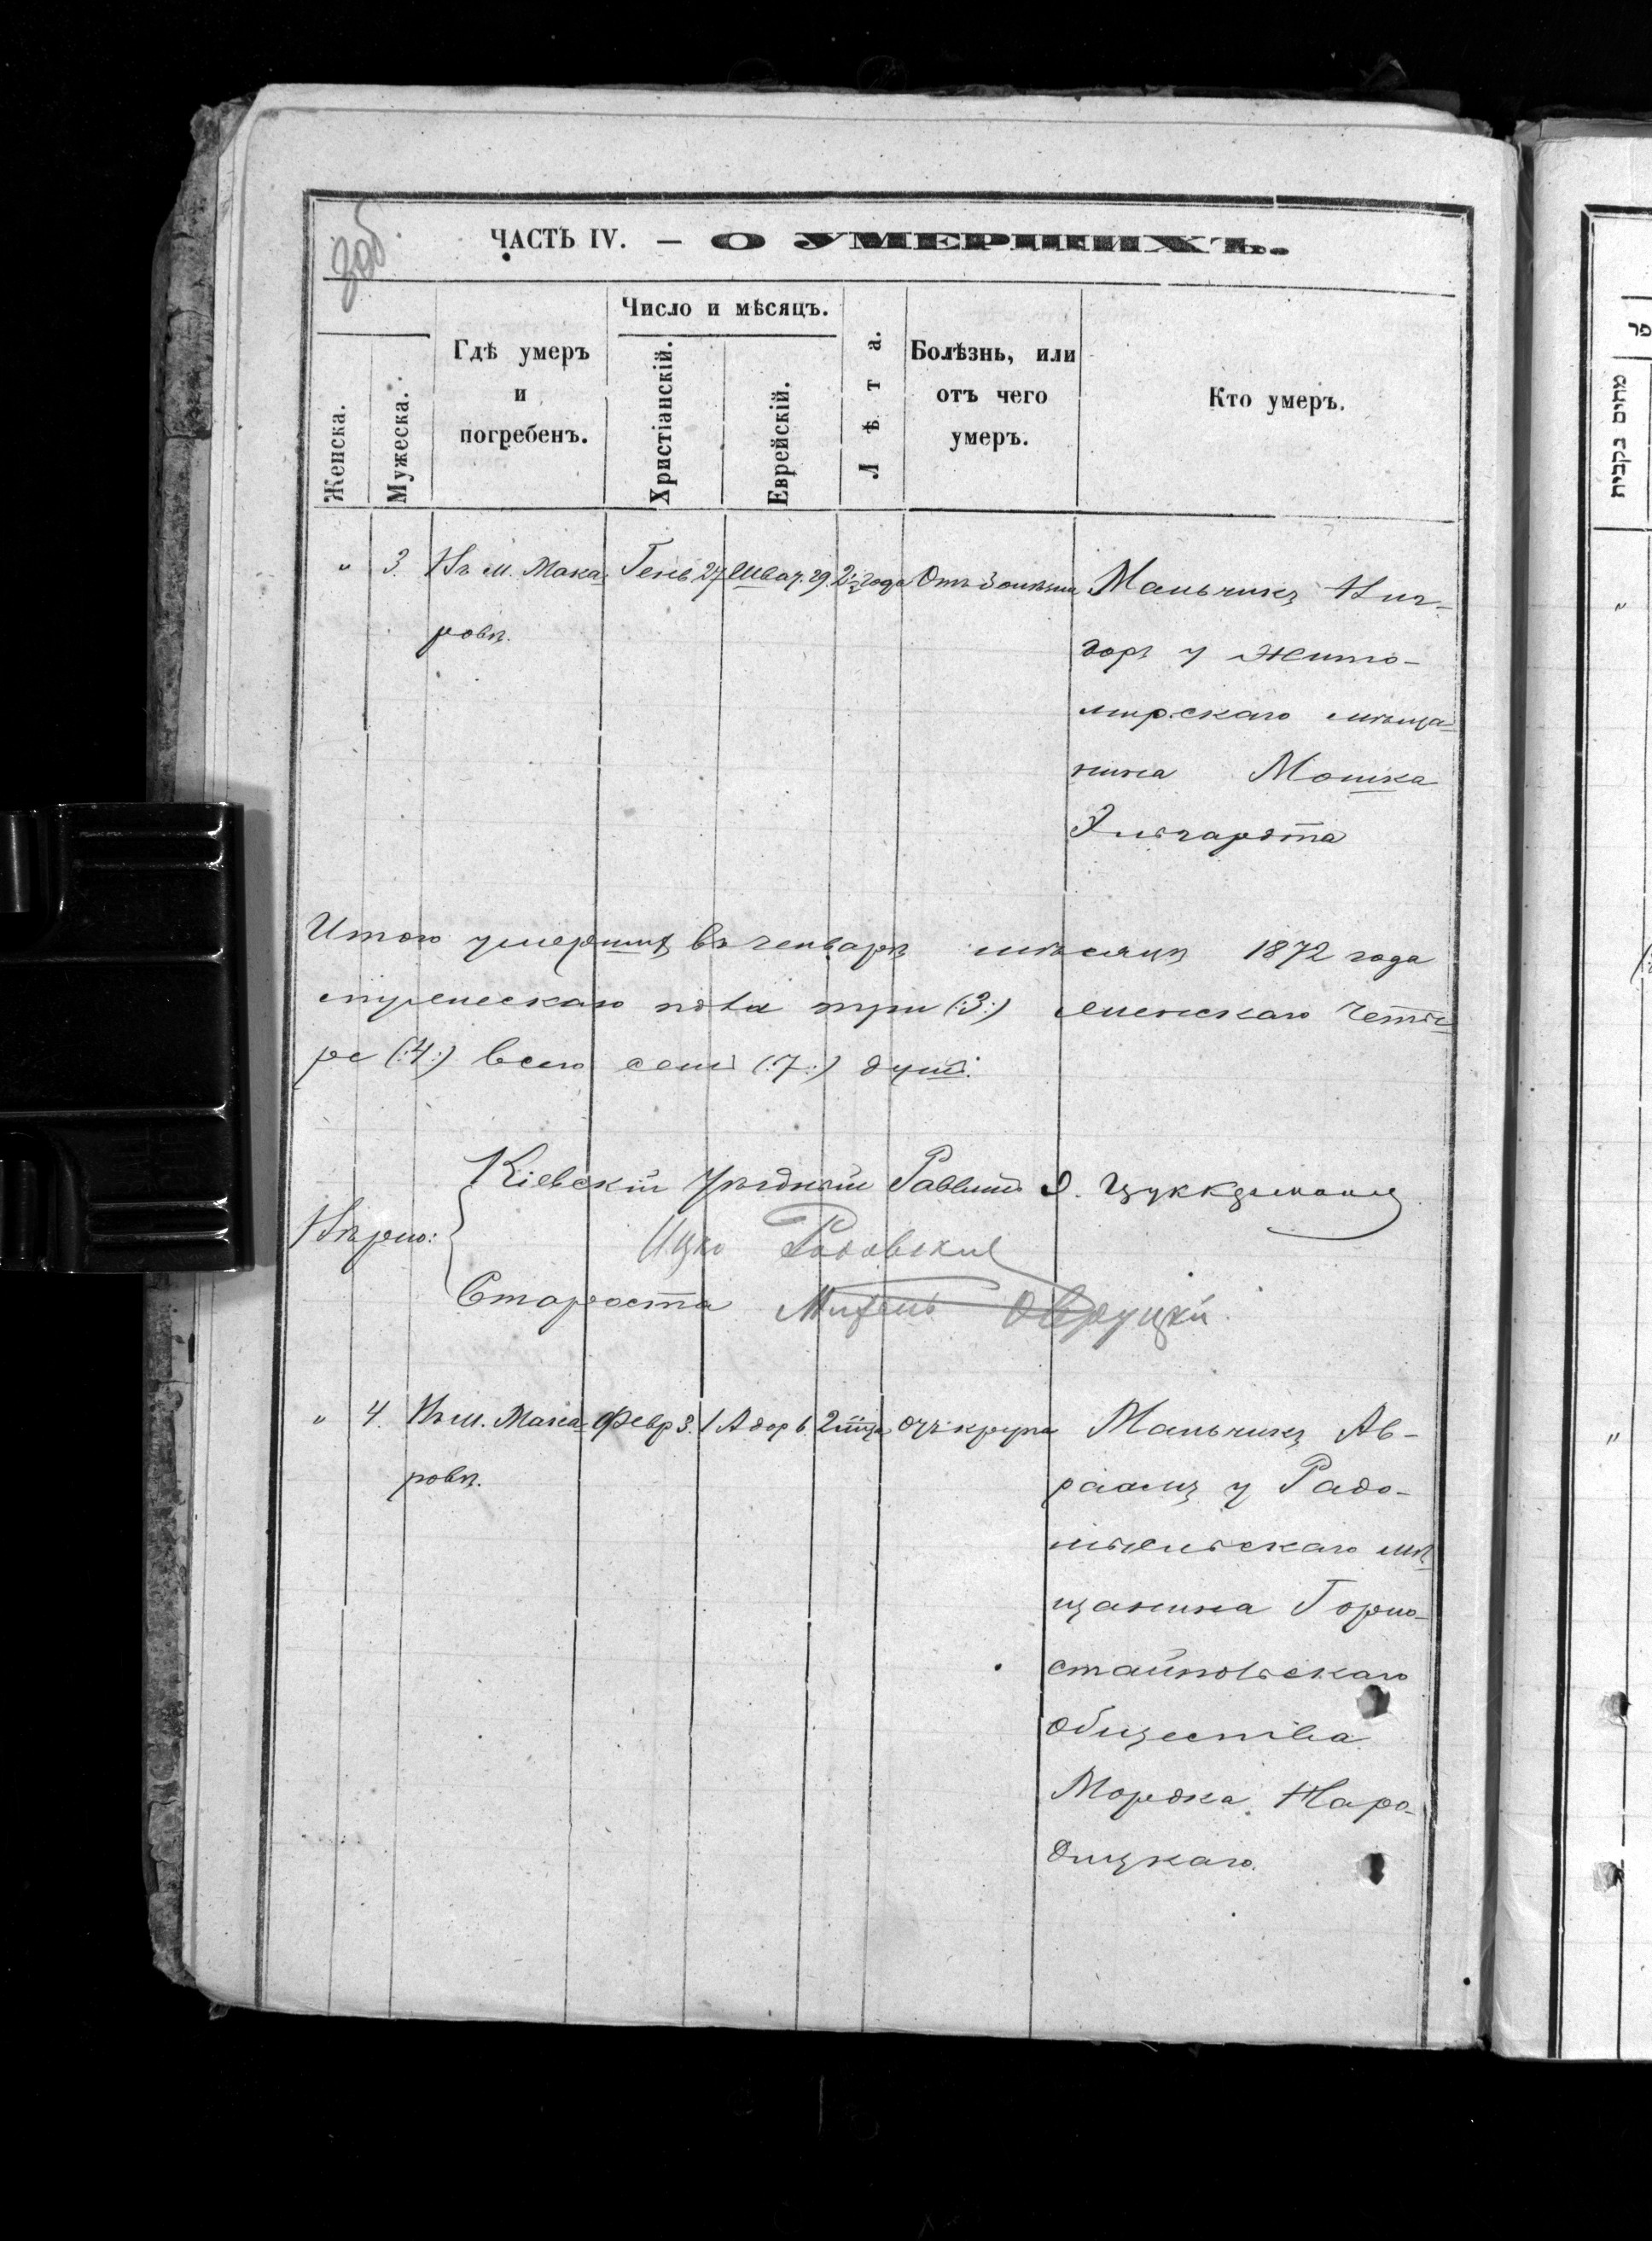 3об.
ЧАСТЬ IV. — О УМЕРШИХЪ.
Женска.
Мужеска.
Гдѣ умеръ
и
погребенъ.
Число и мѣсяцъ.
Христіанскій.
Еврейскій.
Лѣта.
Болѣзнь, или
отъ чего
умеръ.
Кто умеръ.
" 3. Въ м. Мака- Генв 27 Шват. 29 2½ года Отъ Мальчикъ Виг-
ровѣ.
доръ у Жито-
мирскаго мѣща-
нина Мошка
Итого умершихъ въ генварѣ мѣсяцѣ 1872 года
мужескаго пола три (:3:) женскаго четы-
ре (:4:) всего семь (:7:) душъ.
Кіевскій Уѣздный Раввинъ Цуккерманъ
Вѣрно:
Ицко
Староста Овруцкій
" 4. Въ м. Мака- Февр 3. Адор 6 2 мца отъ крупа Мальчикъ Ав-
ровѣ.
раамъ у Радо-
мысльскаго мѣ-
щанина Горно-
стайпольскаго
общества
Мордка Наро-
дицкаго.
פר
מתים
נקבות
"
"